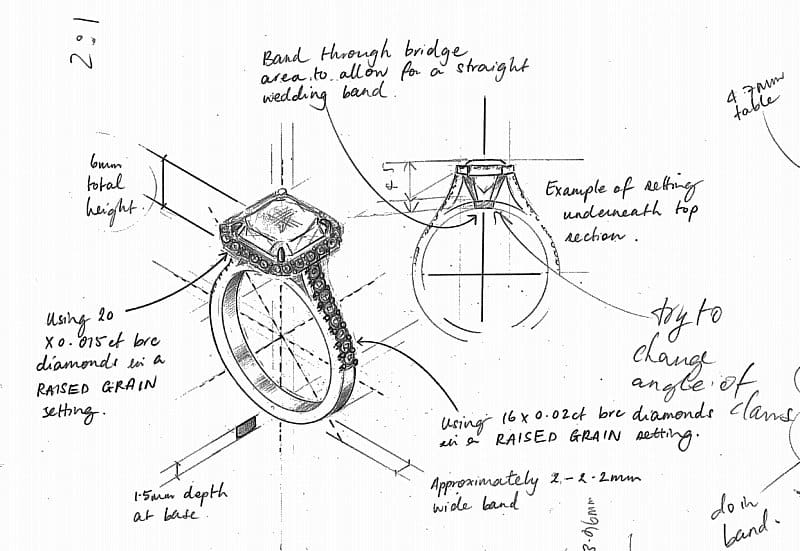 2:1
Band through bridge
area to allow for a straight
wedding band.
4.7mm
table
6mm
total
height
Example of setting
underneath top
section.
Using 20
x 0.015ct brc
diamonds in a
RAISED GRAIN
setting.
try to
change
angle of
claws
Using 16 x 0.02ct brc diamonds
in a RAISED GRAIN setting.
1.5mm depth
at base.
Approximately 2-2.2mm
wide band
3.96mm
do in
band.